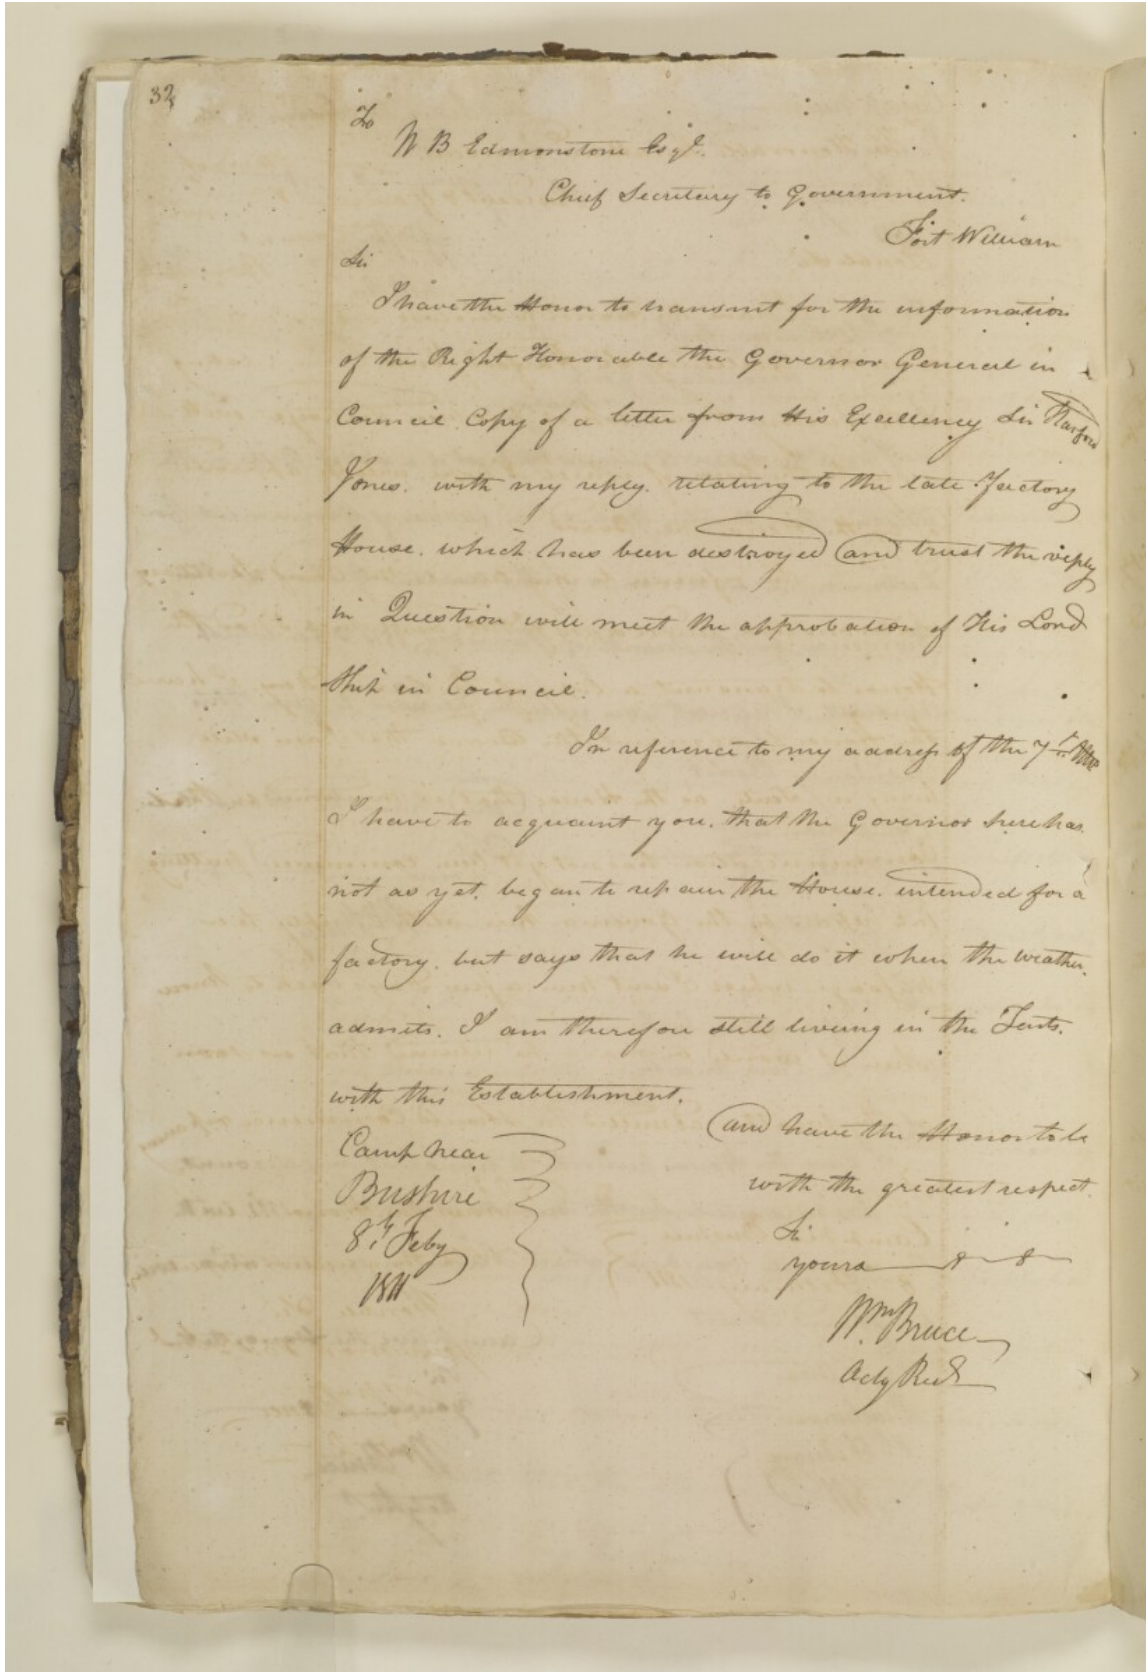 32
To
N B Edmonstone Esqr.
Chief Secretary to Government.
Fort William
Sir
I have the Honor to transmit for the information
of the Right Honorable the Governor General in
Council Copy of a letter from His Excellency Sir Harford
Jones. with my reply. relating to the late Factory
House. which has been destroyed and trust the reply
in Question will meet the approbation of His Lord
Ship in Council.
In reference to my address of the 7th
I have to acquaint you. that the Governor here has
not as yet. began to repair the House. intended for a
factory. but says that he will do it when the weather.
admits. I am therefore still liveing in the Tents.
with this Establishment.
and have the Honor to be
with the greatest respect.
Sir
yours &. &.
Wm. Bruce
Actg Resdt
Camp near
Bushire
8th. Feby
1811